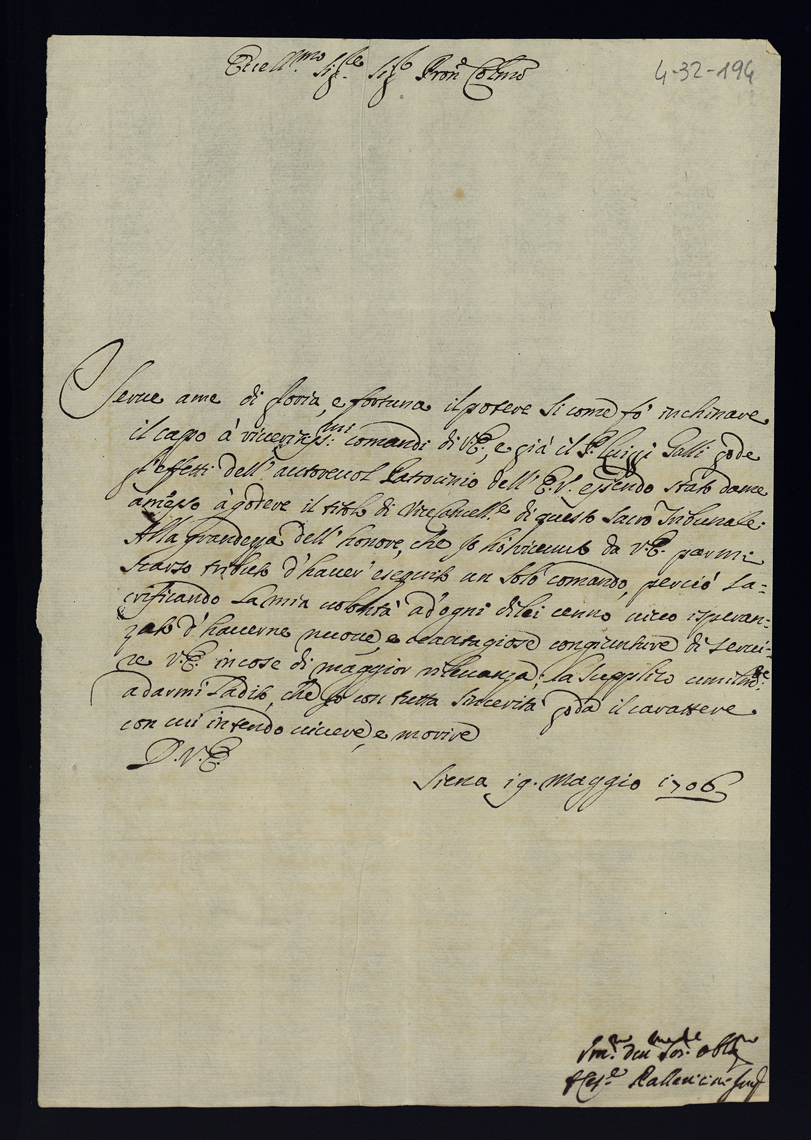 Eccell.mo Sig.re Sig.r Pron.e Col.mo
4-32-194
Serue ame di gloria, e fortuna il potere si come fò inchinare
il capo à riueritiss:mi comandi di V.E., e già il P. Luigi Galli gode
gl'effetti dell'autoreuol Patrocinio dell'E.V. essendo stato dame
ameso à godere il titolo di Vicecancell.re di questo Sacro Tribunale.
Alla grandezza dell'honore, che Io hò riceuuto da V.E. par mi
scarso tributo d'hauer'eseguito un solo comando, perciò sa=
crificando la mia uolontà ad'ogni di lei cenno uiuo isperan=
zato d'hauerne nuoue, e uantagiose congiunture di serui=
re V.E. in cose di maggior rileuanza; la supplico umilm.te
adarmi l'adito, che Io con tutta sincerità goda il carattere
con cui intendo uiuere, e morire
D.V.E.
Siena 19. Maggio 1706
Um.mo Deu.mo Ser.e obl.mo
Pallauicini